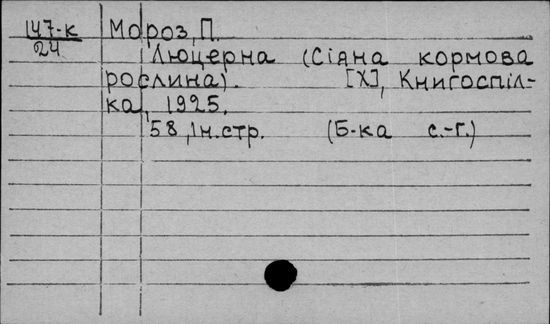 147-к Мороз, П.
24
Люцерна (Сіяна кормова
рослина). [Х], Книгоспіл-
ка, 1925.
58, Ін.стр. (Б-ка с.-г.)